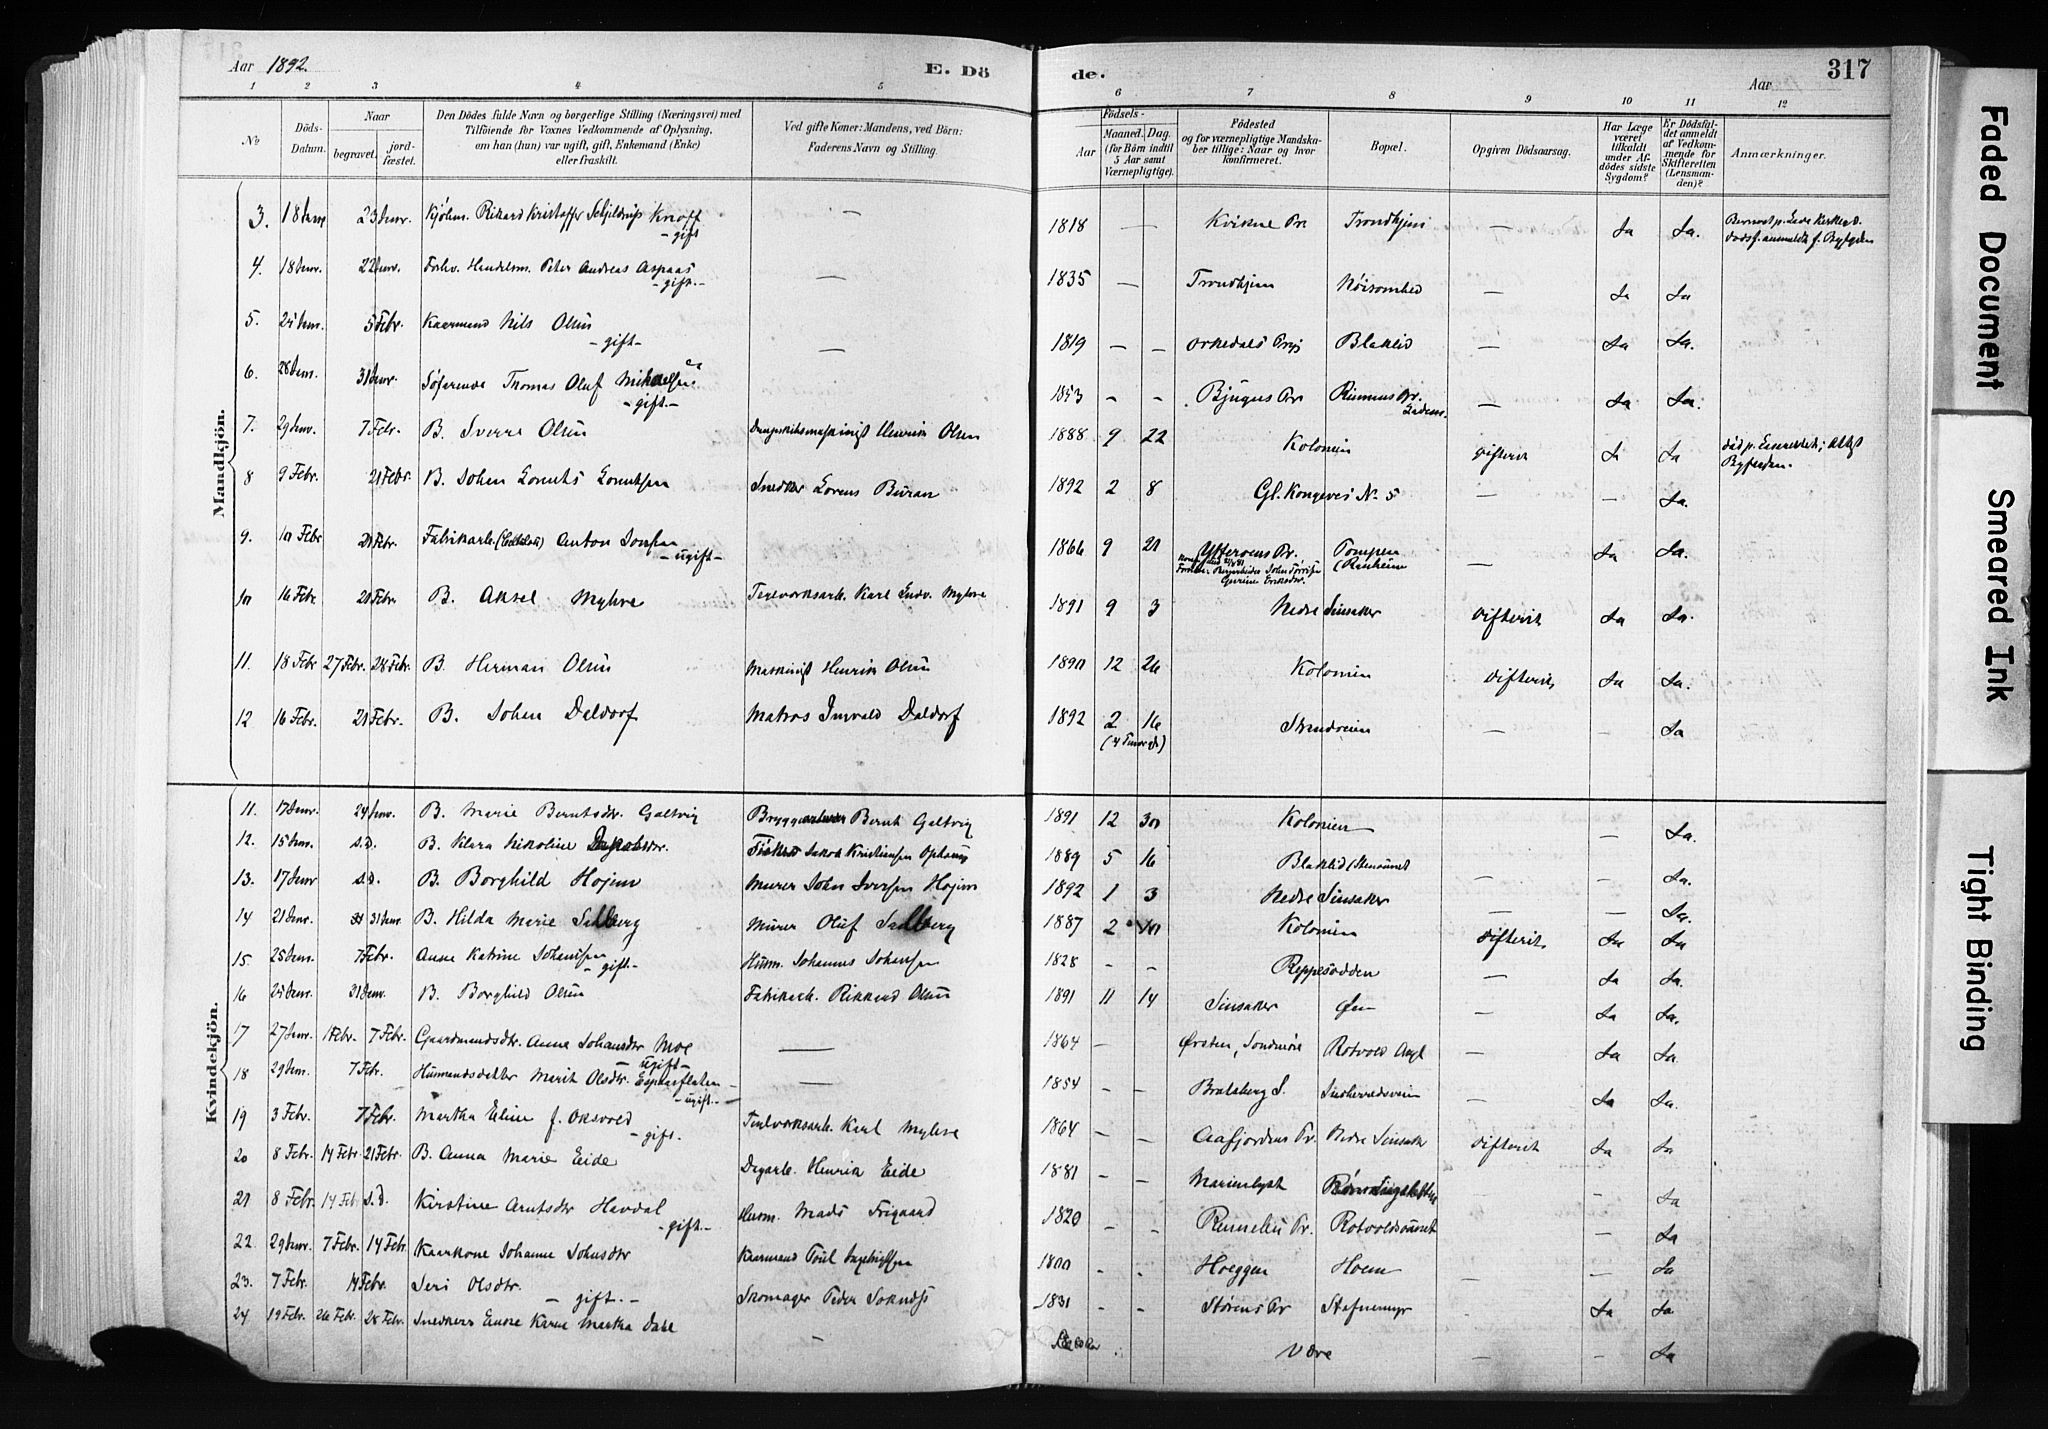 Aar 1892.
E. Dö
de.
Aar
317
1 2 3 4 5 6 7 8 9 10 11 12
No
Döds-Datum.
Naar
begravet.
jord-fæstet.
Den Dödes fulde Navn og borgerlige Stilling (Næringsvei) med
Tilföiende for Voxnes Vedkommende af Oplysning,
om han (hun) var ugift, gift, Enkemand (Enke)
eller fraskilt.
Ved gifte Koner: Mandens, ved Börn:
Faderens Navn og Stilling.
Födsels-
Aar
Maaned.
Dag.
(for Börn indtil
5 Aar samt
Værnepligtige).
Födested
og for værnepligtige Mandska-
ber tillige: Naar og hvor
konfirmeret.
Bopæl.
Opgiven Dödsaarsag.
Har Læge
været
tilkaldt
under Af-
dödes sidste
Sygdom?
Er Dödsfal-
det anmeldt
af Vedkom-
mende for
Skifteretten
(Lensman-
den)?
Anmærkninger.
Mandkjön.
3. 18 Janr 23 Janr. Kjøbm. Rikard Kristoffer Schjeldrup Knoff - gift — 1818 — Kvikne Pr. Trondhjem — Ja Ja.
4. 18 Janr. 22 Janr. Forhv. Handelsm. Peter Andreas Aspaas - gift. - — 1835 — Trondhjem Nøisomhed — Ja Ja
5. 25 Janr. 5 Febr. Kaarmand Nils Olsen - gift - — 1819 — — Orkedals Prgj Blaklid — Ja Ja.
6. 28 Janr. 31 Janr. Søfarende Thomas Oluf Mikaelsen - gift. - 1853 — — Bjugns Pr. — Ja Ja.
7. 29 Janr. 7 Febr. B. Sverre Olsen Henrik Olsen 1888 9 22 Kolonien Difterit Ja Ja
8 9 Febr. 21 Febr. B. Johen Lorents Lorentsen Snedker Lorens Buran 1892 2 8 Gl. Kongevei No 5 — — Ja.
9. 10 Febr 21 Febr. Fabrikarb. Anton Jonsen - ugift - 1866 9 21 Ytterøens Pr. Tempen (Ranheim — Ja Ja.
10 16 Febr. 21 Febr. B. Aksel Myhre Teglverksarb. Karl Ludv. Myhre 1891 9 3 Nedre Sinsaker Difterit Ja Ja.
11. 18 Febr 27 Febr. 28 Febr. B. Herman Olsen Maskinist Henrik Olsen 1890 12 26 Kolonien Difterit, Ja Ja.
12 16 Febr. 21 Febr. B. Johen Daldorf Matros Ingvald Daldorf 1892 2 16 Strandveien — — Ja
Kvindekjön.
11. 17 Janr. 24 Janr. B. Marie Berntsdtr. Galtvig Bernt Galtvig 1891 12 30 Kolonien — Ja.
12. 15 Janr. s.D. B. Klara Nikoline Jakobsdtr. Fisker Jakob Kristiansen Ophaug 1889 5 16 Blaklid — — Ja.
13. 17 Janr s.D. B. Borghild Hojem Murer John Iversen Hojem 1892 1 3 Nedre Sinsaker — — Ja.
14 21 Janr. 31 Janr. B. Hilda Marie Salberg Murer Oluf Salberg 1887 2 10 Kolonien Difterit Ja Ja
15 25 Janr. 7 Febr. Anne Katrine Johansen - gift. - Husm. Johannes Johansen 1828 — — Reppesodden — Ja Ja.
16 25 Janr. 31 Janr. B. Borghild Olsen Fabrikarb. Rikkard Olsen 1891 11 14 Sinsaker Øen — Ja Ja.
17 27 Janr. 1 Febr. 7 Febr. Gaardmandsdtr. Anne Johansdtr Moe ugift - — 1864 — Ørsten, Søndmøre Rotvold Asyl — Ja Ja.
18 29 Janr. 7 Febr. Husmandsdatter Marit Olsdtr. Espaasflaten - ugift. - — 1854 — — Bratsberg S. — Ja Ja.
19 3 Febr. 7 Febr. Martha Eline f. Oksvold - gift. Teglverksarb. Karl Myhre 1864 — — Aafjordens Pr. Nedre Sinsaker Difterit Ja Ja
20 8 Febr. 14 Febr 21 Febr. B. Anna Marie Eide Dagarb. Henrik Eide 1881 — — Marienlyst — — Ja
21 8 Febr. 14 Febr. s.D. Kirstine Arntsdtr Havdal - gift - Husm. Mads Trigaard 1820 — — Rennebu Pr. Rotvoldsaunet — Ja
22. 29 Janr. 7 Febr. 14 Febr. Kaarkone Johanne Johnsdtr Kaarmand 1800 - - Hoeggen Hoem — — Ja
23. 7 Febr. 14 Febr. Seri Olsdtr. - gift. - Skomager Peder Soknes 1831 - - Størens Pr Stafnemyr Ja Ja
24 19 Febr. 26 Febr. 28 Febr. Snedkers Enke Karen Martha Dahl — Være — — Ja
Faded Document
Smeared Ink
Tight Binding